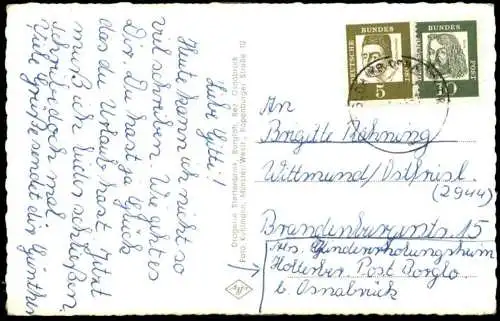 Liebe Gitti!
Heute kann ich nicht so
viel schreiben. Wie geht es
Dir. Du hast ja Glück
das du Urlaub hast. Jetzt
muß ich leider schließen,
schreib doch mal
Viele Grüße sendet dir Günther
Drogerie Stertenbrink, Borgloh, Bez. Osnabrück
Foto Kuhlmann, Münster-West., Büpenburger Straße 12
Agfa
DEUTSCHE
BUNDES
POST
5
DEUTSCHE
BUNDES
POST
10
An
Brigitte Röhning
Wittmund/Ostfriesl.
(2944)
Brandenburgerstr. 15
Abs. Kindererholungsheim
Holterberg Post Borglo
b. Osnabrück